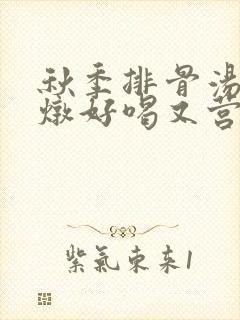 秋季排骨汤
燉好喝又营
紫氣東来1